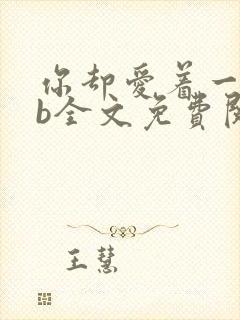 你却爱着一
b全文免費閱
王慧